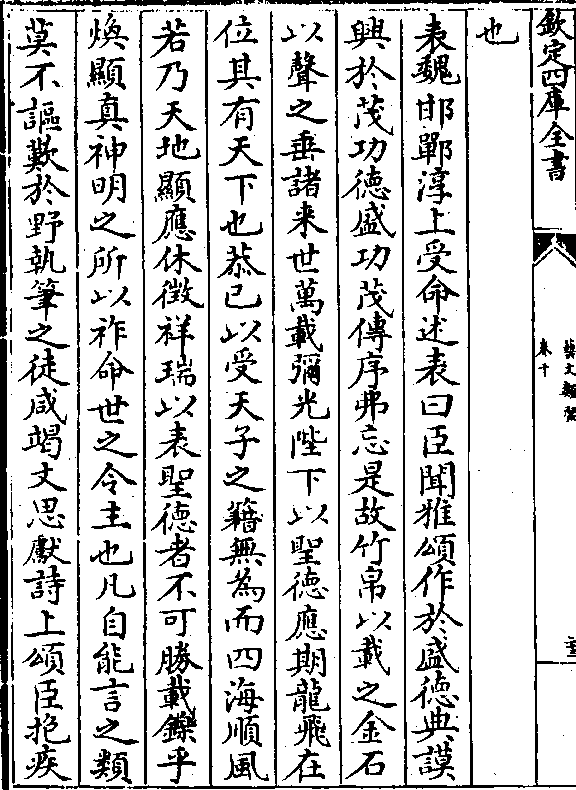 欽定四庫全書
藝文類聚
卷十
也
表魏邯鄲淳上受命述表曰臣聞雅頌作於盛德典謨
興於茂功德盛功茂傳序弗忘是故竹帛以載之金石
以聲之垂諸来世萬載彌光陛下以聖德應期龍飛在
位其有天下也恭已以受天子之籍無為而四海順風
若乃天地顯應休徴祥瑞以表聖德者不可勝載鑠乎
煥顯真神明之所以祚命世之令主也凡自能言之類
莫不謳歎於野執筆之徒咸竭文思獻詩上頌臣抱疾